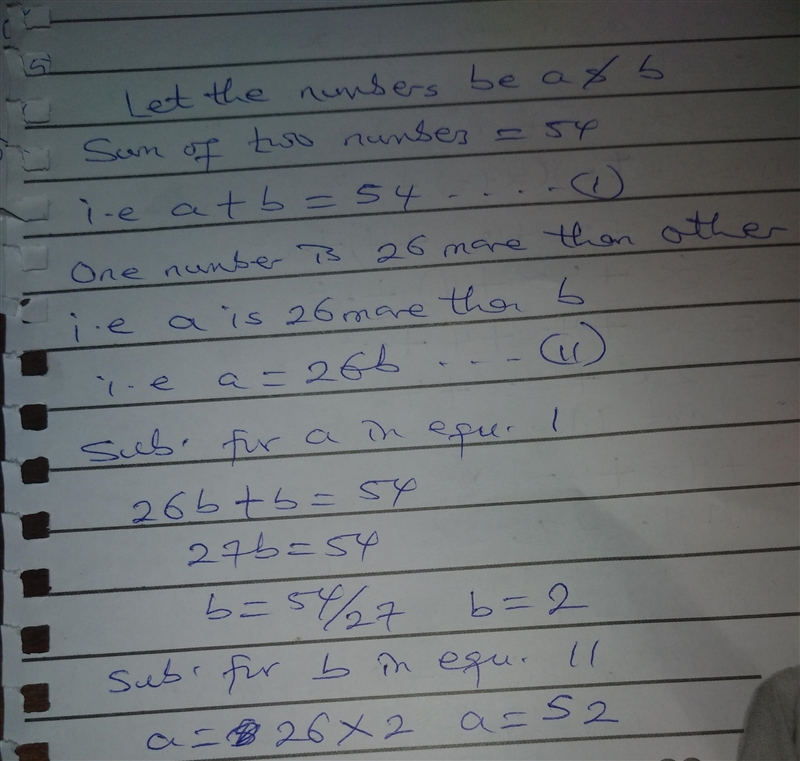 Let the numbers be a & b
Sum of two number = 54
i.e a + b = 54 .... (I)
One number is 26 more than other
i.e a is 26 more than b
i.e a = 26b ... (II)
Sub. for a in equ. I
26b + b = 54
27b = 54
b = 54/27 b = 2
Sub. for b in equ. II
a = 26 × 2 a = 52